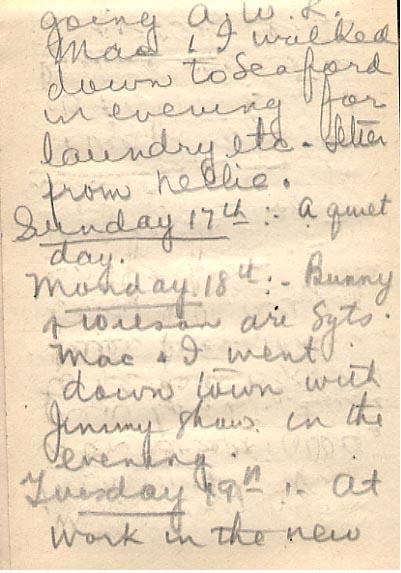 going A.W.L.
Mac & I walked
down to Seaford
in evening for
laundry etc. letter
from Nellie.
Sunday 17th :- A quiet
day.
Monday 18th :- Bunny
& Wilson are Sgts.
Mac & I went
down town with
Jimmy Shaw in the
evening.
Tuesday 19th :- At
work in the new